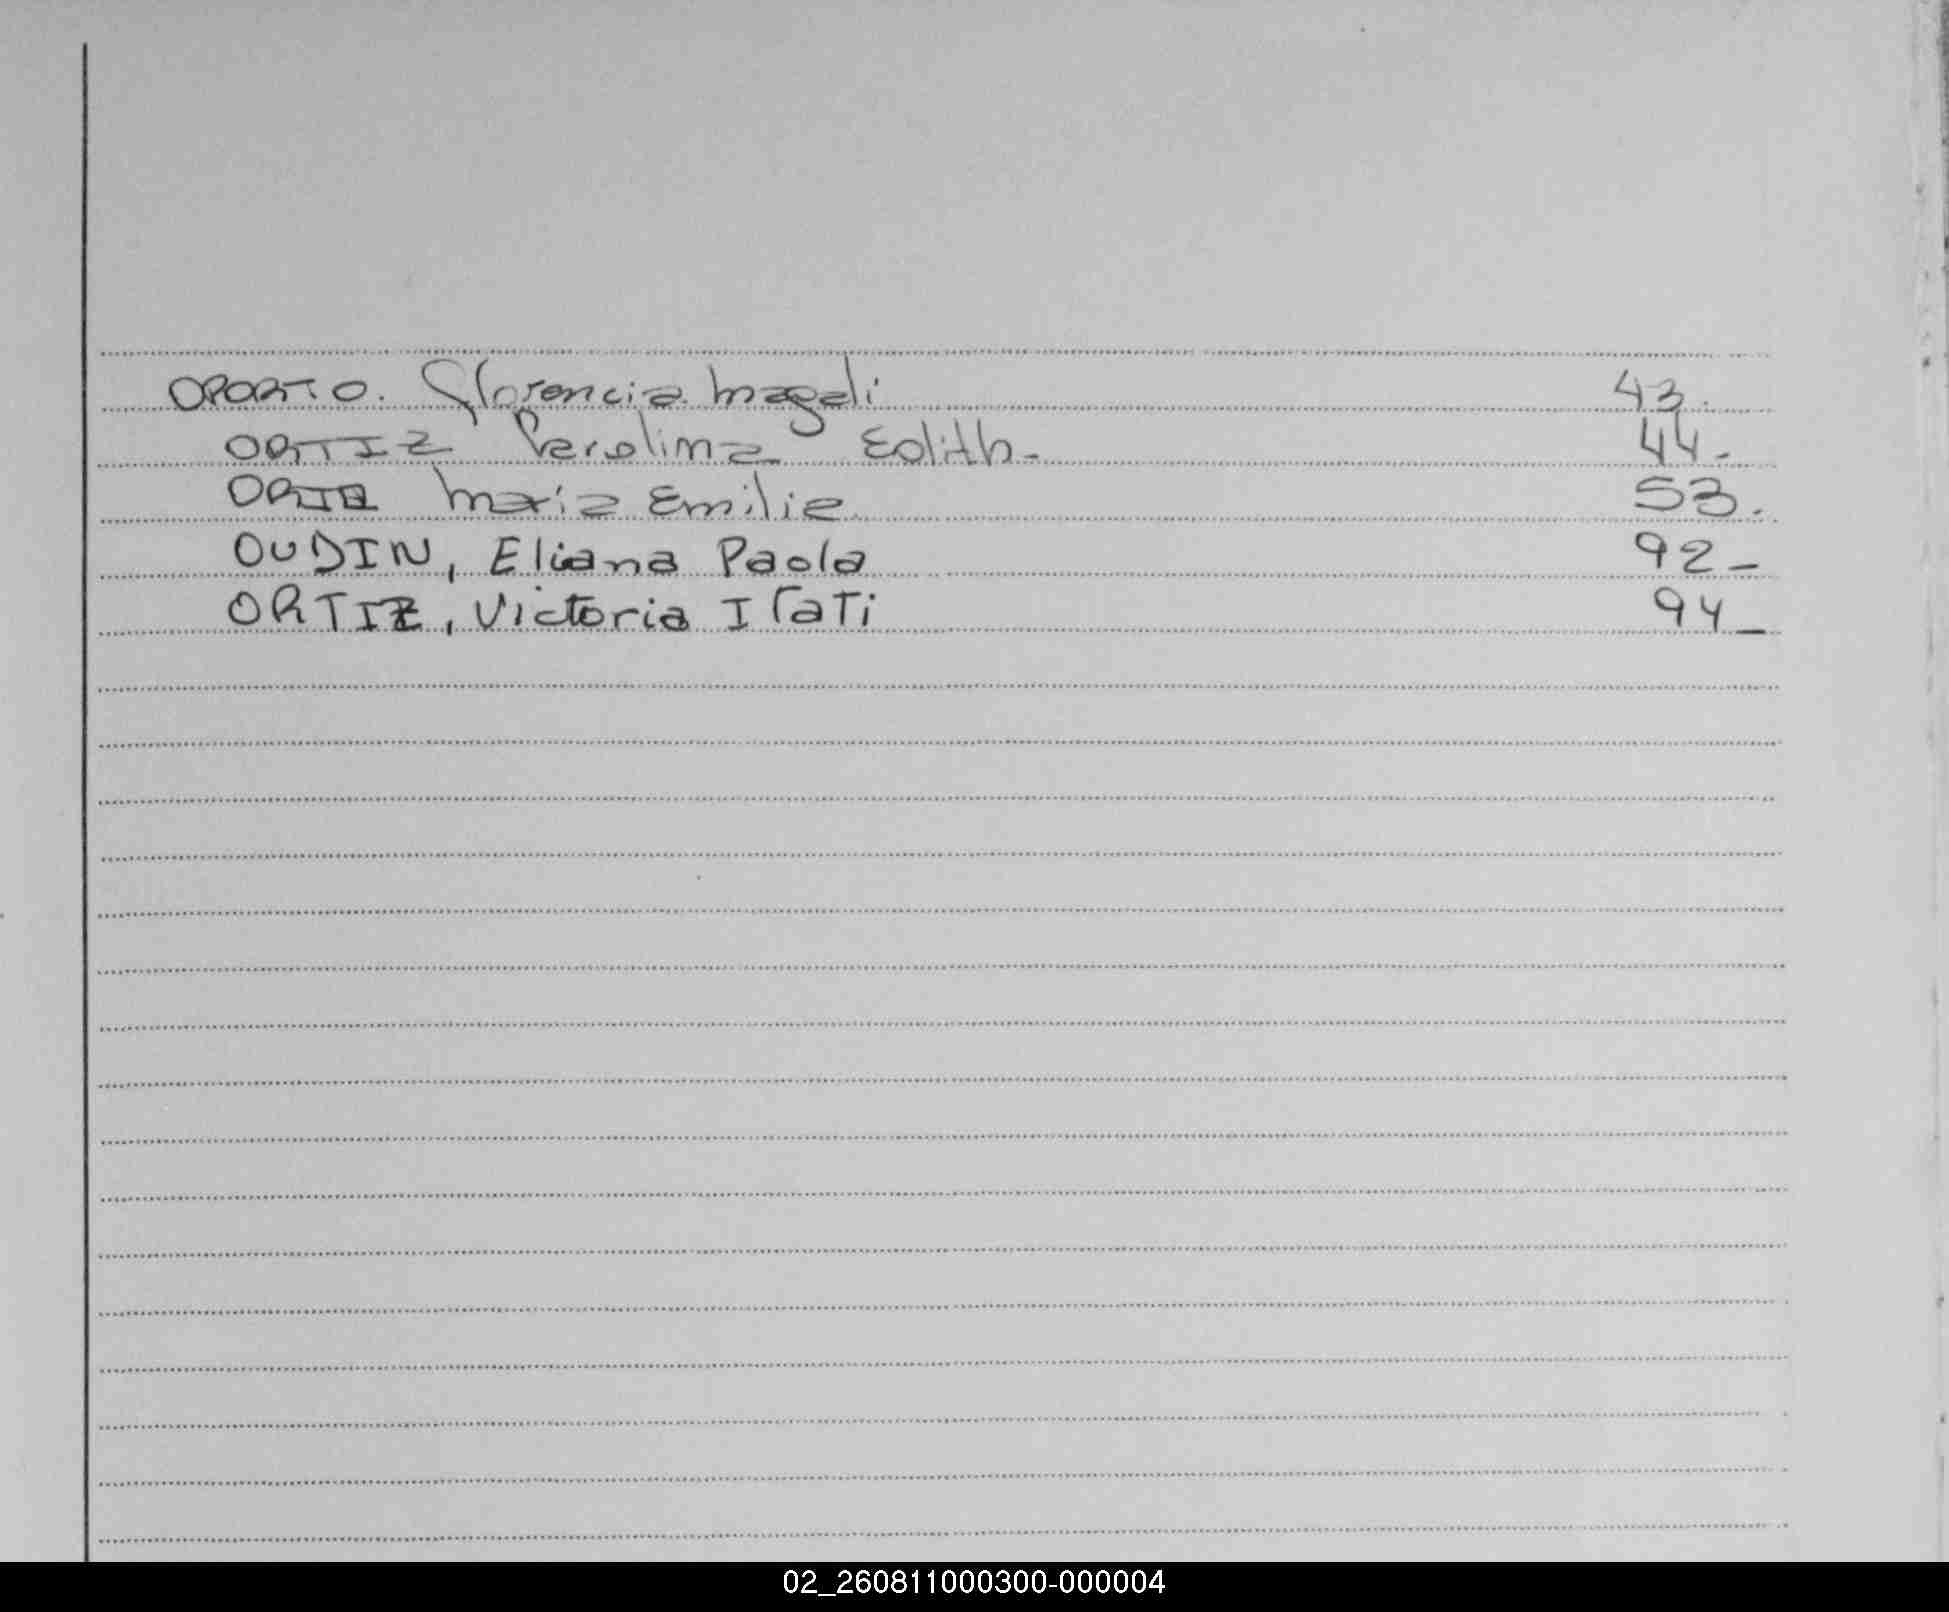 OPORTO. Florencia Magali 43.
ORTIZ Carolina Edith. 44.
Maria Emilia 53.
OUDIN, Eliana Paola 92_
ORTIZ, Victoria Itati 94_
02_260811000300-000004